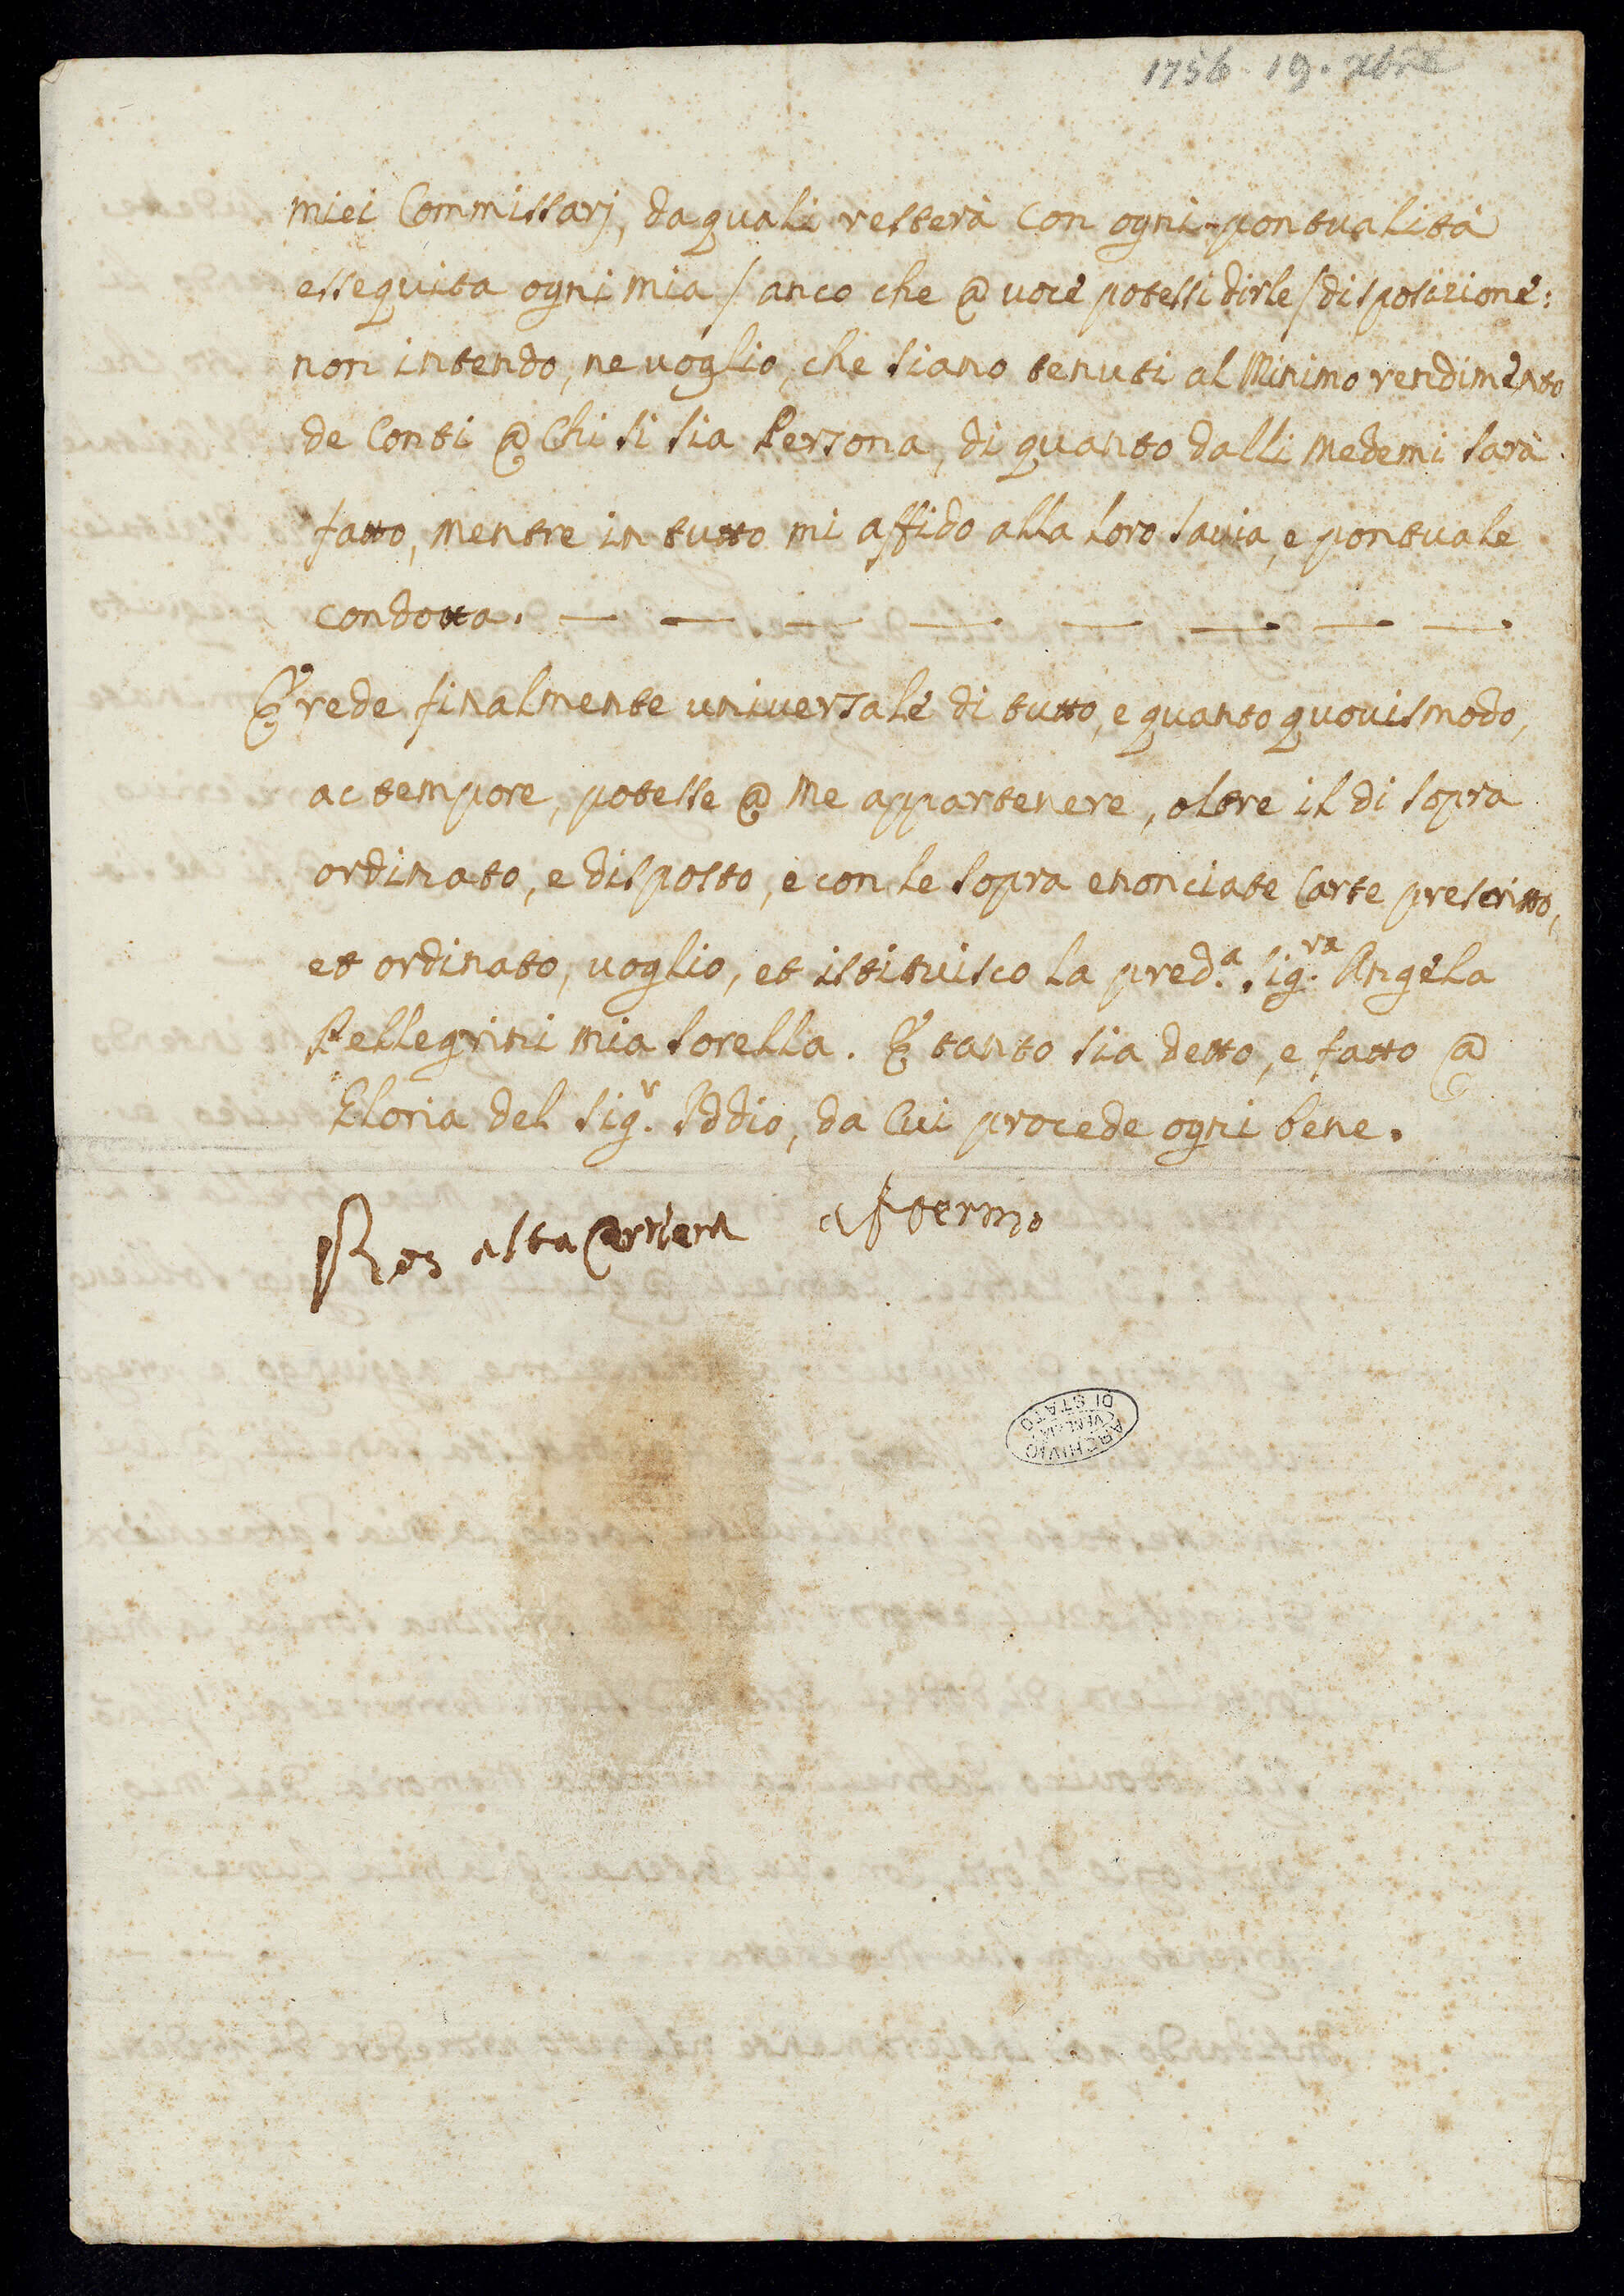 1756. 19. xbre
miei Commissarj, da quali resterà con ogni pontualità
essequita ogni mia / anco che @ voce potessi dirle / disposizione:
non intendo, ne uoglio, che siano tenuti al Minimo rendimento
de Conti @ Chi si sia Persona, di quanto dalli Medemi sarà
fatto, Mentre in tutto mi affido alla loro sauia, e pontuale
condotta. — — — — — — — —
Erede finalmente uniuersale di tutto, e quanto quouismodo,
ac tempore, potesse @ Me appartenere, oltre il di sopra
ordinato, e disposto, e con le sopra enonciate Carte prescritto,
et ordinato, uoglio, et istituisco la pred.a Sig.ra Angela
Pellegrini mia sorella. E tanto sia detto, e fatto @
Gloria del Sig.r Iddio, da Cui procede ogni bene.
Ros alba Carriera affermo
ARCHIVIO
DI STATO
VENEZIA